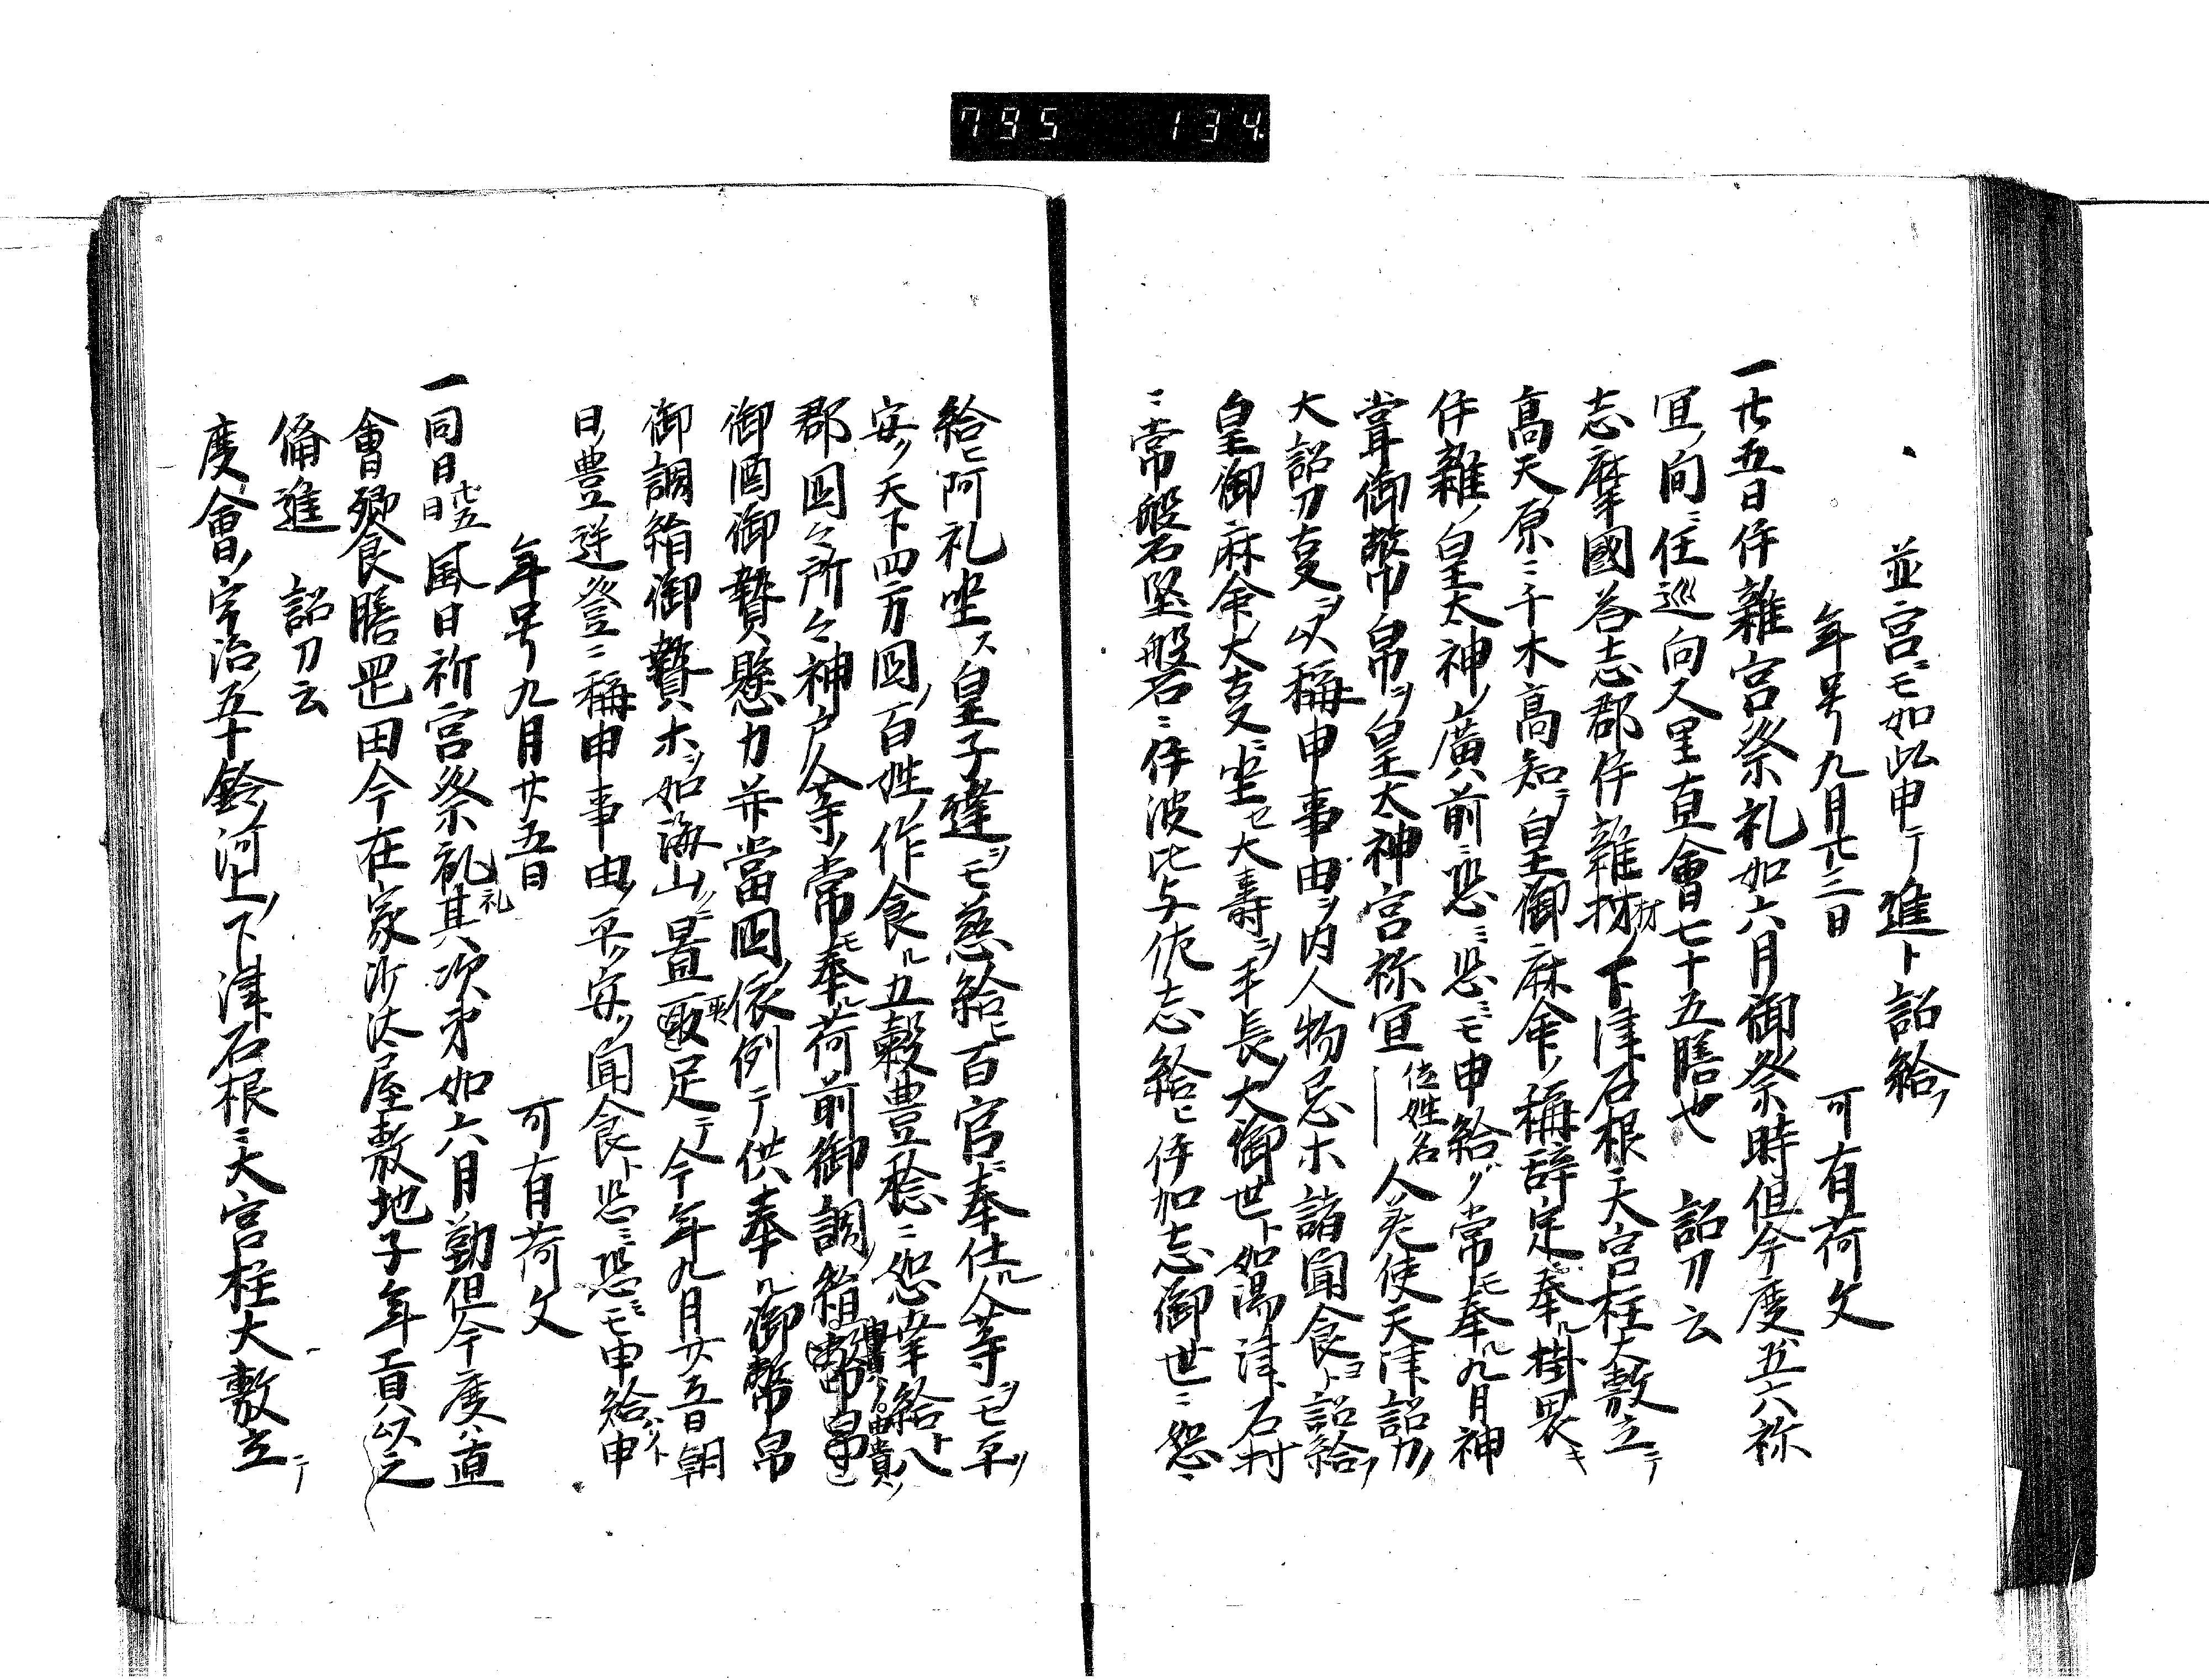 795 134
並宮ニモ如此申テ進ト詔給ノ
年号九月廿三日 可有荷文
一廿五日伊雜宮祭礼如六月御祭時但今度五六祢
宜ノ間ニ任巡向又里直會七十五膳也 詔刀云
志摩國荅志郡伊雜村ノ下津石根ニ大宮柱大敷立テ
高天原ニ千木高知テ皇御麻命ノ稱辞定奉ル掛畏キ
伊雜ノ皇太神ノ廣前ニ恐ミ恐ミモ申給ク常モ奉ル九月神
甞御幣帛ヲ皇太神宮祢宜位姓名人差使天津詔刀ノ
大詔刀支ヲ以稱申事由ヲ内人物忌木諸聞食ト詔給ノ
皇御麻命大支ニ坐セ大壽ヲ手長ノ大御世ト如湯津石村
ニ常磐石堅磐石ニ伊波比与佐志給ヒ伊加志御世ニ恕ニ
給ヒ阿礼坐ス皇子達ヲモ慈給ヒ百官奉仕人等ヲモ平ク
安ク天下四方国ノ百姓ノ作食ル五穀豊稔ニ恕幸給ト八
郡国々所々神戸人等常モ奉ル荷前御調ノ
御酒御贄懸力并當国依例テ供奉ル御幣帛
御調絹御贄木ヲ如海山ノ置足テ今年九月廿五日朝
日豊逆登ニ稱申事由ヲ平ク安ク聞食ト恐ミ恐ミモ申給ハクト申
年号九月廿五日 可有荷文
一同日廿五日風日祈宮祭礼其次第如六月勤但今度ハ直
會饗膳定田今在家沙汰屋敷地子年貢以之
備進 詔刀云
度會ノ宇治ノ五十鈴ノ河上ノ下津石根ニ大宮柱大敷立テ